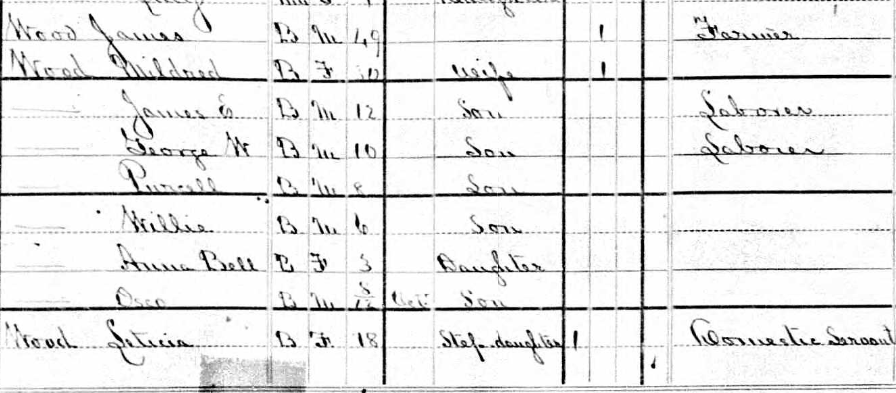 Wood James B M 49 1 Farmer
Wood Mildred B F Wife 1
James E B M 12 Son Laborer
George W B M 10 Son Laborer
Purcell B M 8 Son
Willie B M 6 Son
Anna Bell B F 3 Daughter
Osco B M 8/12 Oct Son
Wood Leticia B F 18 Step-daughter 1 Domestic Servant